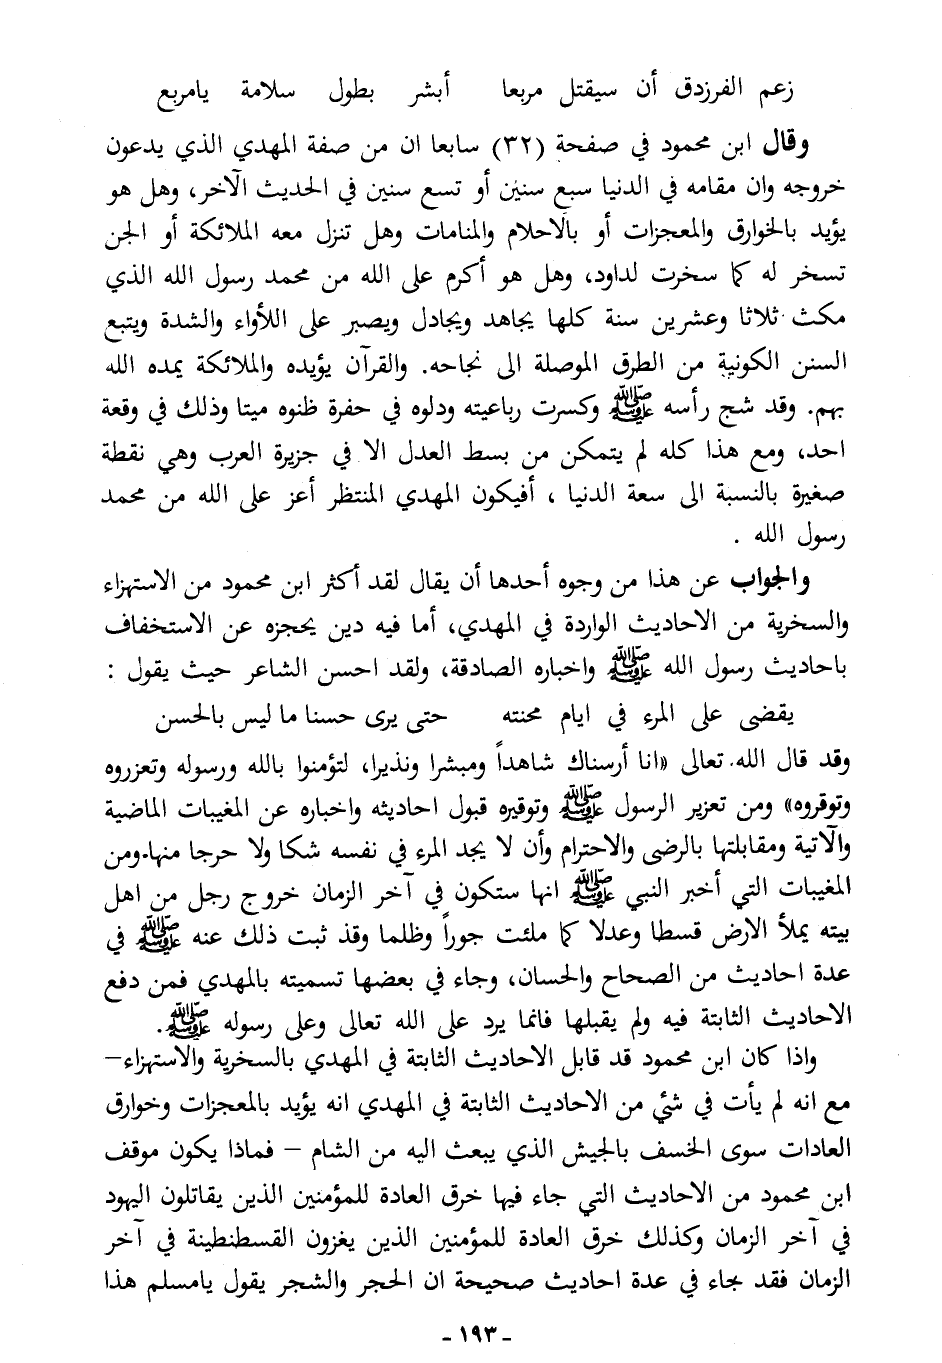 زعم الفرزدق أن سيقتل مربعا    أبشر بطول سلامة يامربع
وقال ابن محمود في صفحة (٣٢) سابعا ان من صفة المهدي الذي يدعون
خروجه وان مقامه في الدنيا سبع سنين أو تسع سنين في الحديث الآخر، وهل هو
يؤيد بالخوارق والمعجزات أو بالاحلام والمنامات وهل تنزل معه الملائكة أو الجن
تسخر له كما سخرت لداود، وهل هو أكرم على الله من محمد رسول الله الذي
مكث ثلاثا وعشرين سنة كلها يجاهد ويجادل ويصبر على اللأواء والشدة ويتبع
السنن الكونية من الطرق الموصلة الى نجاحه. والقرآن يؤيده والملائكة يمده الله
بهم. وقد شج رأسه ﷺ وكسرت رباعيته ودلوه في حفرة ظنوه ميتا وذلك في وقعة
احد، ومع هذا كله لم يتمكن من بسط العدل الا في جزيرة العرب وهي نقطة
صغيرة بالنسبة الى سعة الدنيا ، أفيكون المهدي المنتظر أعز على الله من محمد
رسول الله .
والجواب عن هذا من وجوه أحدها أن يقال لقد أكثر ابن محمود من الاستهزاء
والسخرية من الاحاديث الواردة في المهدي، أما فيه دين يحجزه عن الاستخفاف
باحاديث رسول الله ﷺ واخباره الصادقة، ولقد احسن الشاعر حيث يقول :
يقضى على المرء في ايام محنته    حتى يرى حسنا ما ليس بالحسن
وقد قال الله تعالى «انا أرسناك شاهداً ومبشرا ونذيرا، لتؤمنوا بالله ورسوله وتعزروه
وتوقروه» ومن تعزير الرسول ﷺ وتوقيره قبول احاديثه واخباره عن المغيبات الماضية
والآتية ومقابلتها بالرضى والاحترام وأن لا يجد المرء في نفسه شكا ولا حرجا منها.ومن
المغيبات التي أخبر النبي ﷺ انها ستكون في آخر الزمان خروج رجل من اهل
بيته يملأ الارض قسطا وعدلا كما ملئت جوراً وظلما وقذ ثبت ذلك عنه ﷺ في
عدة احاديث من الصحاح والحسان، وجاء في بعضها تسميته بالمهدي فمن دفع
الاحاديث الثابتة فيه ولم يقبلها فانما يرد على الله تعالى وعلى رسوله ﷺ.
واذا كان ابن محمود قد قابل الاحاديث الثابتة في المهدي بالسخرية والاستهزاء–
مع انه لم يأت في شئ من الاحاديث الثابتة في المهدي انه يؤيد بالمعجزات وخوارق
العادات سوى الخسف بالجيش الذي يبعث اليه من الشام – فماذا يكون موقف
ابن محمود من الاحاديث التي جاء فيها خرق العادة للمؤمنين الذين يقاتلون اليهود
في آخر الزمان وكذلك خرق العادة للمؤمنين الذين يغزون القسطنطينة في آخر
الزمان فقد جاء في عدة احاديث صحيحة ان الحجر والشجر يقول يامسلم هذا
- ١٩٣ -